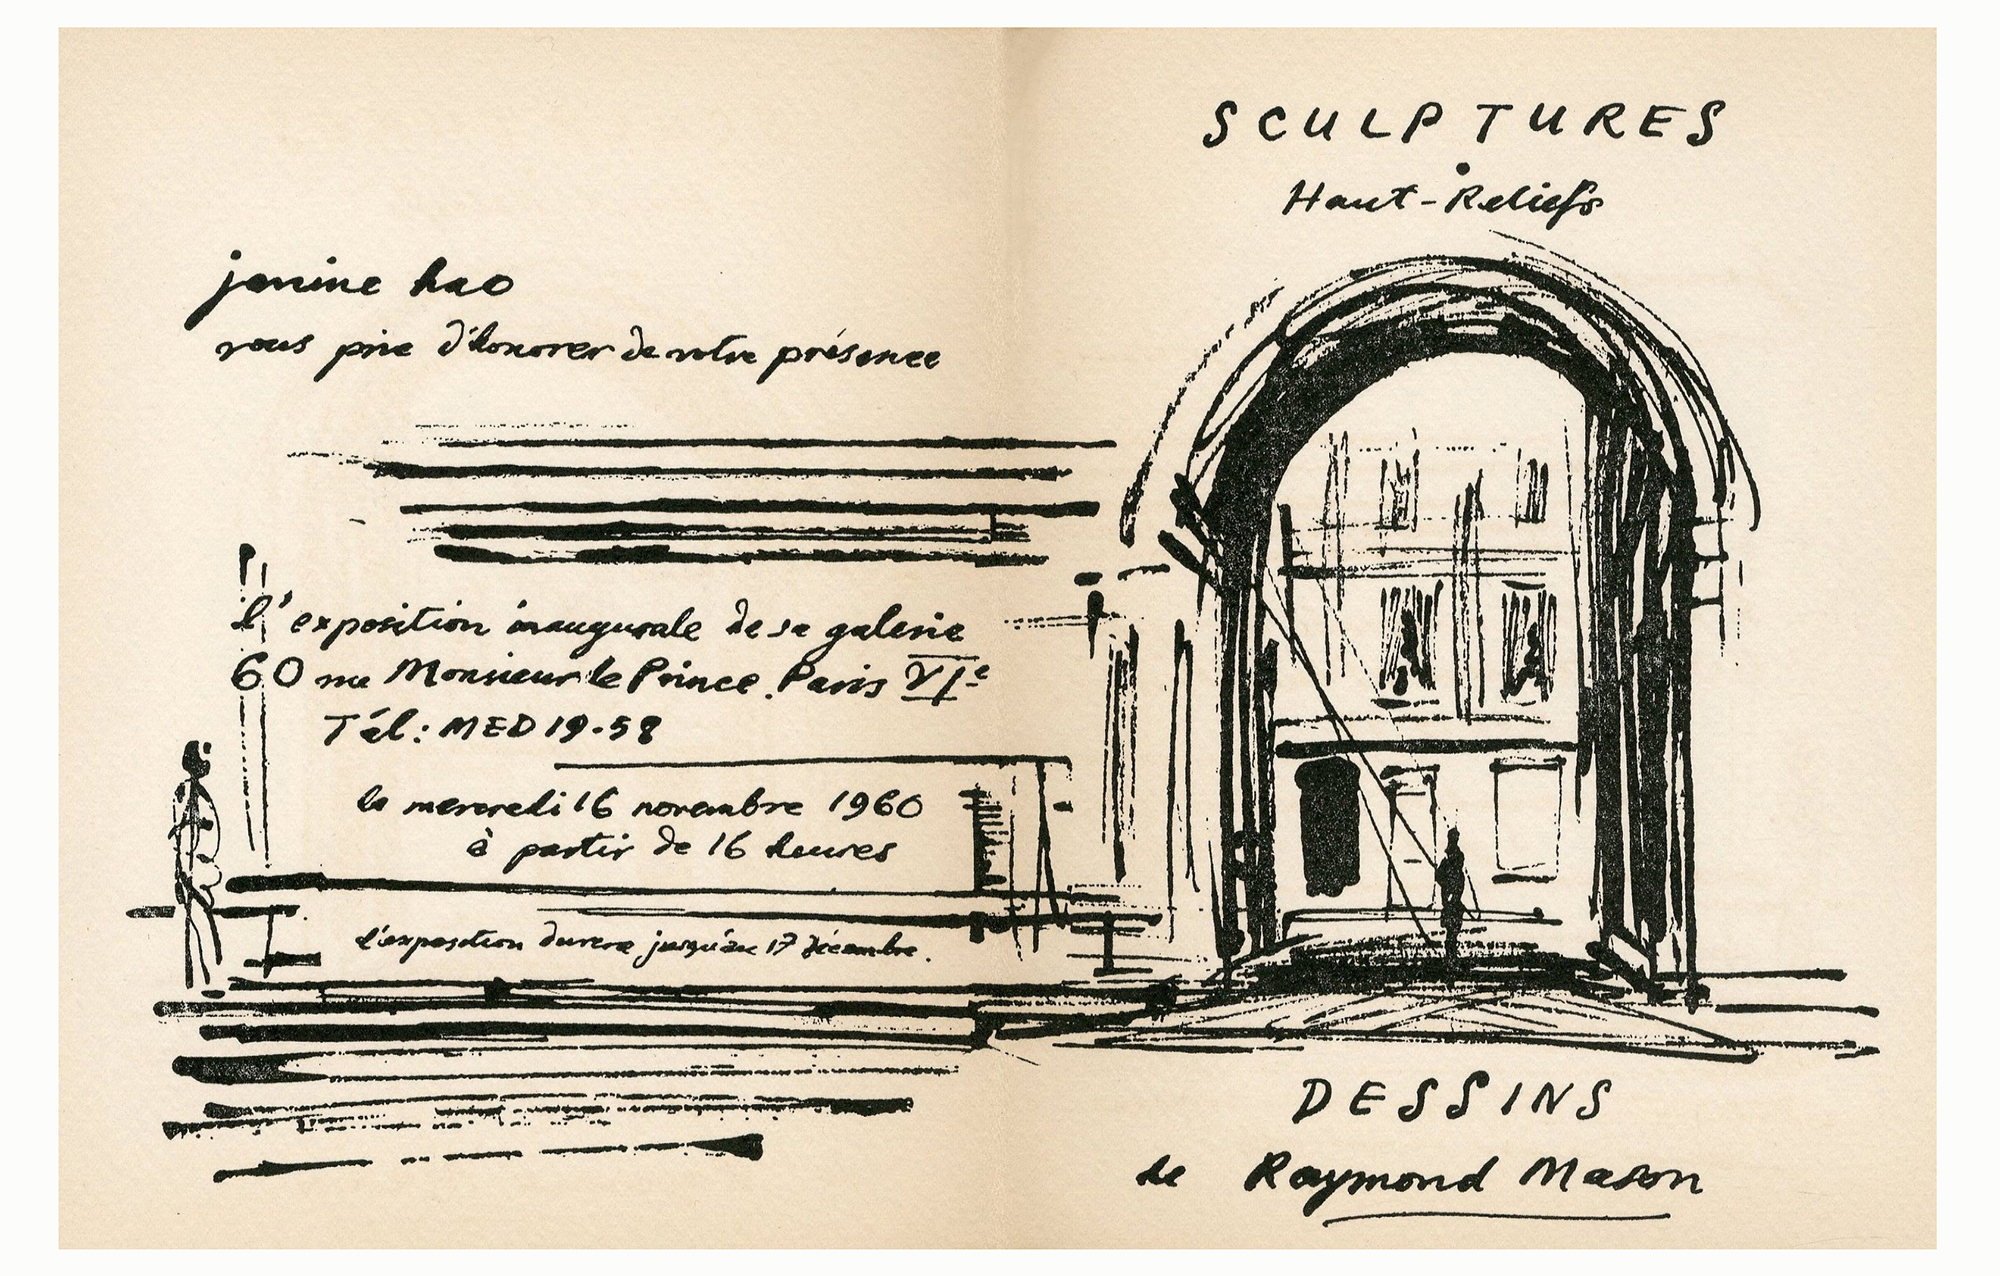 janine hao
vous prie d'honorer de votre présence
l'exposition inaugurale de sa galerie
60 rue Monsieur le Prince. Paris VIe
Tél: MED 19-58
le mercredi 16 novembre 1960
à partir de 16 heures
l'exposition durera jusqu'au 17 décembre.
SCULPTURES
Haut-Reliefs
DESSINS
de Raymond Mason